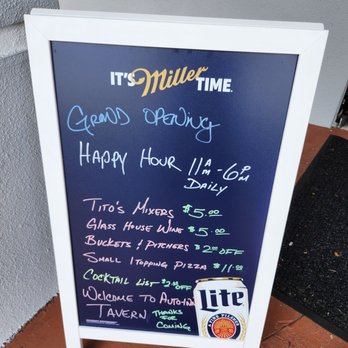 IT'S Miller TIME
GRAND OPENING
HAPPY HOUR 11AM-6PM
DAILY
TITO'S MIXERS $5.00
GLASS HOUSE WINE $5.00
BUCKETS & PITCHERS $2.00 OFF
SMALL 1 TOPPING PIZZA $11.00
COCKTAIL LIST $2.00 OFF
WELCOME TO
TAVERN THANKS
FOR
COMING!
Lite
A FINE PILSNER